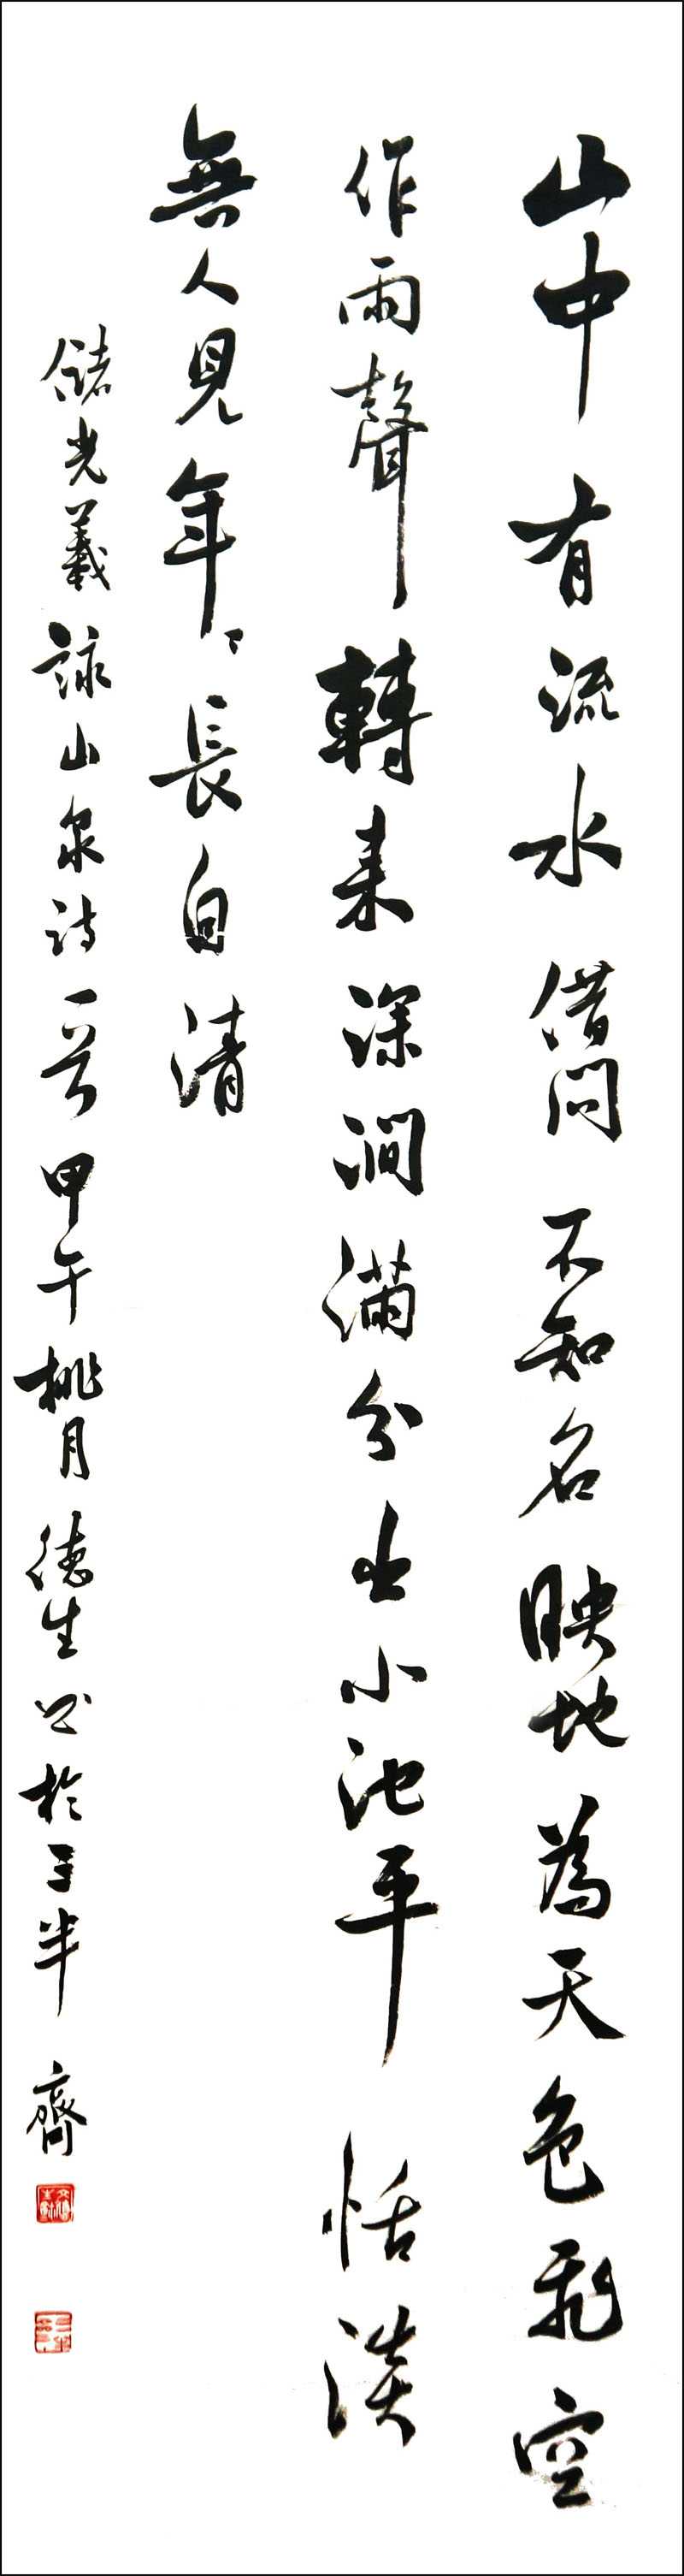 山中有流水借問不知名映地為天色飛空
作雨聲轉來深澗滿分出小池平恬淡
無人見年〻長自清
儲光羲詠山泉詩一首甲午桃月德生書於三半齊